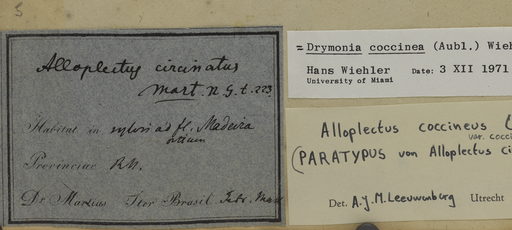 5
Alloplectus circinatus
Mart. N. G. t. 223.
Habitat in sylvis ad fl. Madeira
Provinciae R.N.
Dr Martius Iter Brasil
= Drymonia coccinea (Aubl.) Wieh
Hans Wiehler Date: 3 XII 1971
University of Miami
Alloplectus coccineus (
var. cocci
(PARATYPUS von Alloplectus ci
Det. A.J.M. Leeuwenberg Utrecht